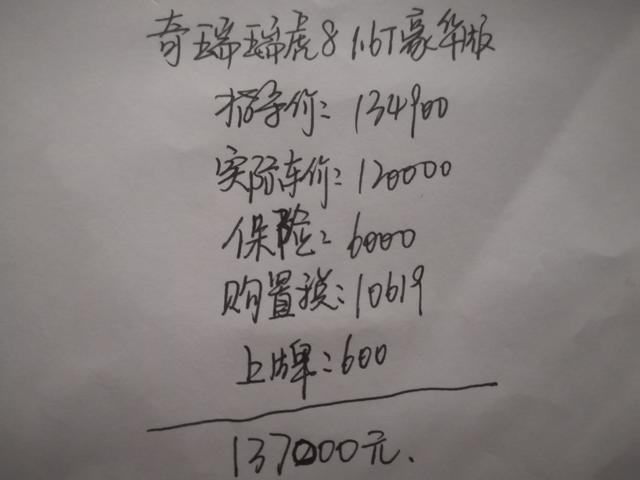 奇瑞瑞虎8 1.6T豪华版
指导价：134900
实际车价：120000
保险：6000
购置税：10619
上牌：600
137000元.